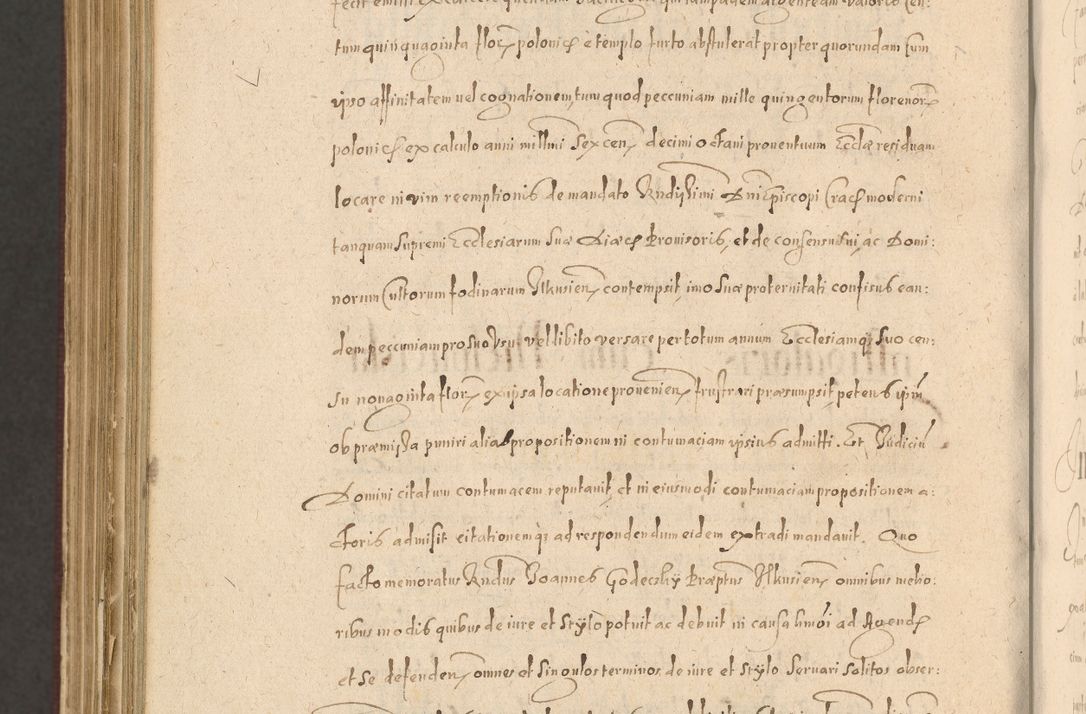 tum quinquaginta floren polonics e templo furto abstulerat propter quorundam cum
ipso affinitatem vel cognationem, tum quod peccuniam mille quingentorum florenorum
polonics ex calculo anni millmi Sexcen decimi octavi proventuum Ecclæ residuam
locare in vim reemptionis de mandato Rndissimi Dni Episcopi Crac moderni
tanquam Supremi Ecclesiarum Suæ Diæc Provisoris, et de consensu Sui, ac Domi:
norum Cultorum fodinarum Ilkusien, contempsit, imo Suæ proternitati confisus ean:
dem peccuniam pro Suo Usu, vel libito versare per totum annum Ecclesiamq Suo cen:
Su nonaginta floren ex ipsa locatione provenien frustrari præsumpsit, petens ipm
ob præmissa puniri alias propositionem in contumaciam ipsius admitti. Et Judiciu
Domini citatum contumacem reputavit, et in eiusmodi contumaciam propositionem a:
ctoris admisit citationemq ad respondendum eidem extradi mandavit. Quo
facto memoratus Rndus Joannes Godeczky Præptus Ilkusien omnibus melio:
ribus modis quibus de iure et Stylo potuit ac debuit in causa hmoi ad Agend
et Se defenden, omnes et Singulos terminos de iure et Stylo Servari Solitos obser: